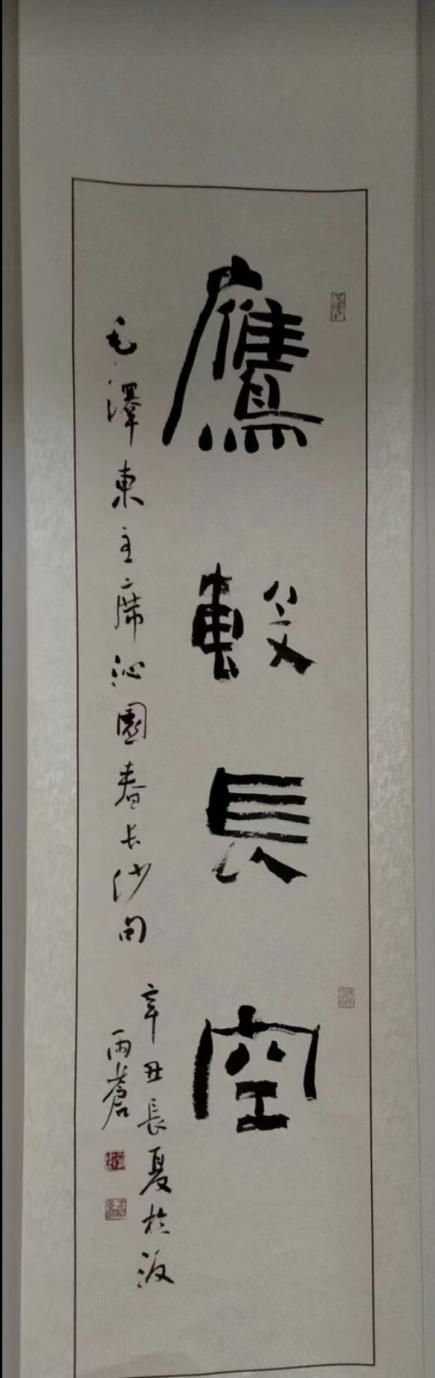 鷹毄長空
毛澤東主席沁園春长沙句
辛丑長夏於
雨蒼